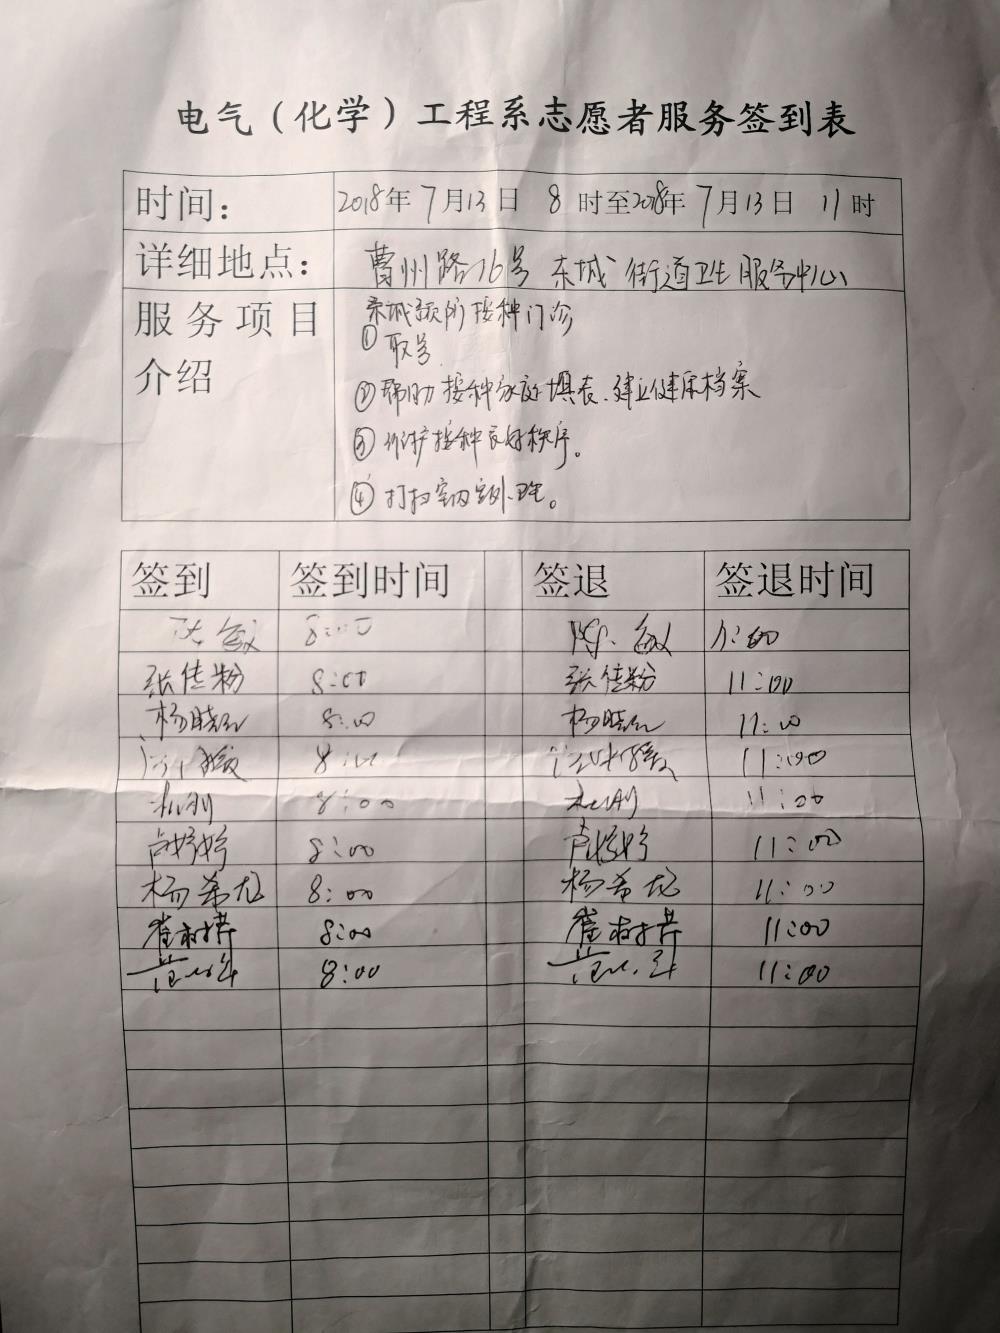 电气（化学）工程系志愿者服务签到表
时间： 2018年7月13日 8时至2018年7月13日 11时
详细地点： 曹州路16号 东城街道卫生服务中心
服务项目介绍
东城预防接种门诊
① 取号
② 帮助接种家庭填表、建立健康档案
③ 维护接种良好秩序。
④ 打扫室内室外卫生。
签到 签到时间 签退 签退时间
敏 8:00 敏 11:00
张佳粉 8:00 张佳粉 11:00
杨晓红 8:00 杨晓红 11:00
8:00 11:00
8:00 11:00
卢婷婷 8:00 卢婷婷 11:00
杨希龙 8:00 杨希龙 11:00
崔 8:00 崔 11:00
范 8:00 范 11:00